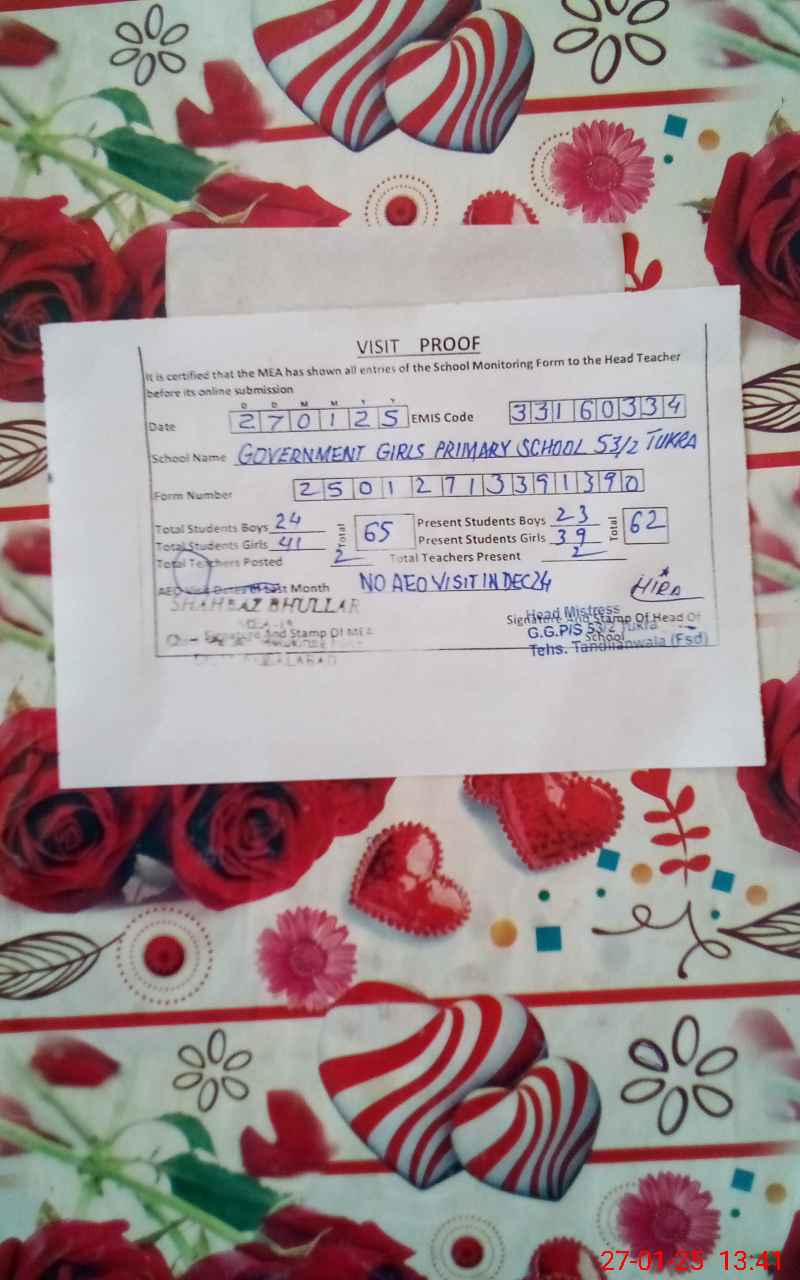 VISIT PROOF
It is certified that the MEA has shown all entries of the School Monitoring Form to the Head Teacher
before its online submission
D D M M Y Y
Date 270125 EMIS Code 33160334
School Name GOVERNMENT GIRLS PRIMARY SCHOOL 53/2 TUKRA
Form Number 25012713391390
Total Students Boys 24 Total 65 Present Students Boys 23 Total 62
Total Students Girls 41 Present Students Girls 39
Total Teachers Posted 2 Total Teachers Present 2
AEO Visit Dates of Last Month NO AEO VISIT IN DEC 24 HIRA
SHAHBAZ BHULLAR
Signature And Stamp Of MEA
Signature And Stamp Of Head Of
School
Head Mistress
G.G.P/S 53/2 Tukra
Tehs. Tandlianwala (Fsd)
27-01-25 13:41